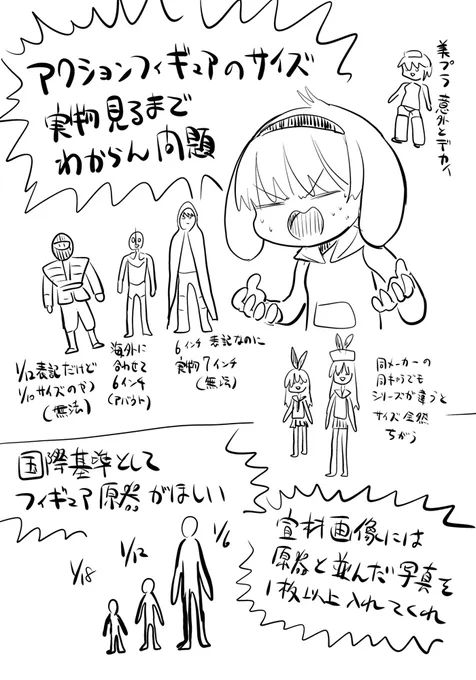 アクションフィギュアのサイズ
実物見るまで
わからん問題
美プラ 意外とデカイ
1/12表記だけど
1/10サイズのやつ
(無法)
海外に
合わせて
6インチ
(アバウト)
6インチ 表記なのに
実物7インチ
(無法)
同メーカーの
同キャラでも
シリーズが違うと
サイズ全然
ちがう
国際基準として
フィギュア原器がほしい
1/18
1/12
1/6
宣材画像には
原器と並んだ写真を
1枚以上入れてくれ